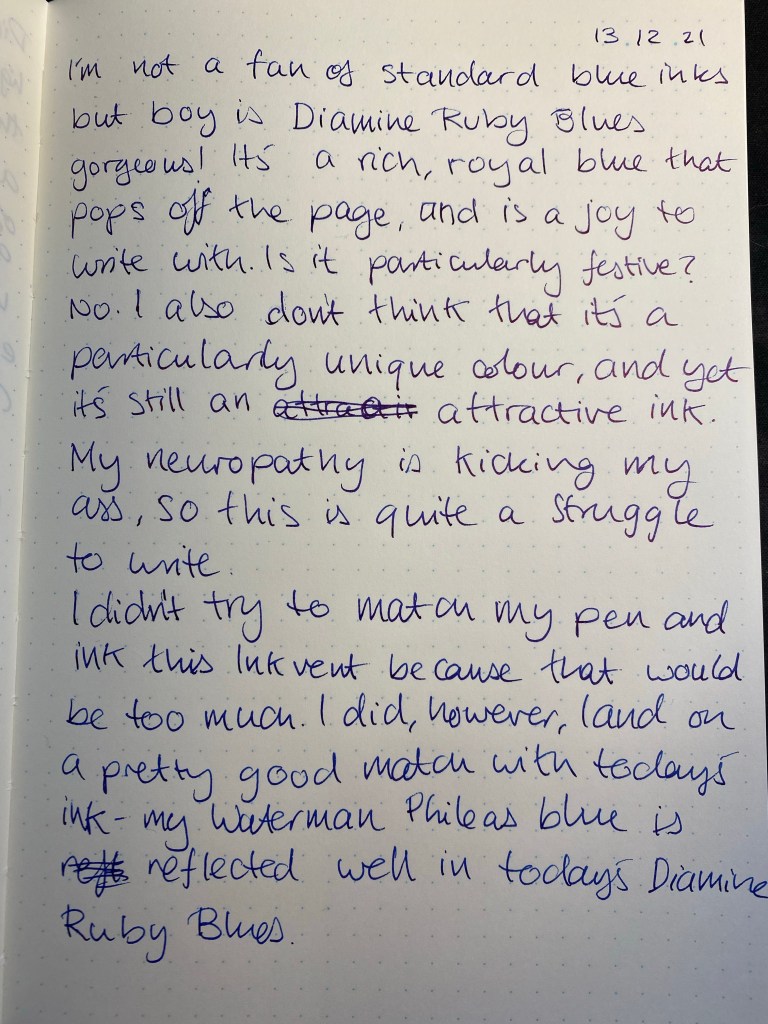 13.12.21
I'm not a fan of standard blue inks
but boy is Diamine Ruby Blues
gorgeous! It's a rich, royal blue that
pops off the page, and is a joy to
write with. Is it particularly festive?
No. I also don't think that it's a
particularly unique colour, and yet
it's still an attractive ink.
My neuropathy is kicking my
ass, so this is quite a struggle
to write.
I didn't try to match my pen and
ink this Inkvent because that would
be too much. I did, however, land on
a pretty good match with today's
ink - my Waterman Phileas blue is
reflected well in today's Diamine
Ruby Blues.